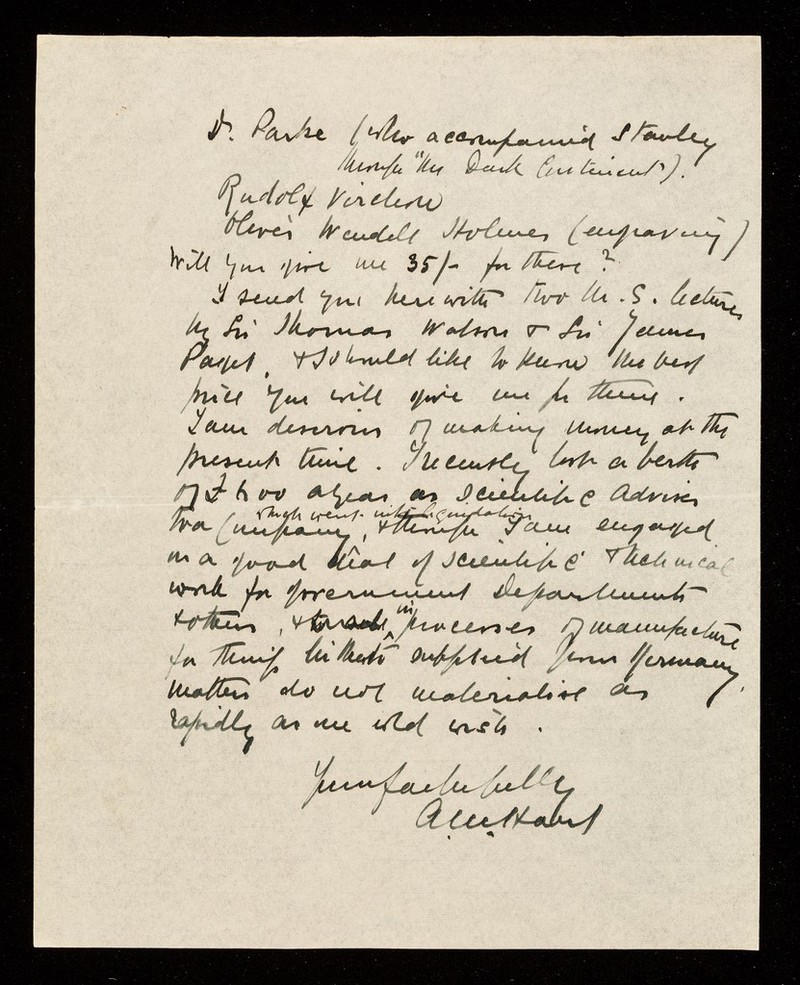 Dr. Parke (who accompanied Stanley
through "the Dark Continent").
Rudolf Virchow
Oliver Wendell Holmes (engraving)
Will you give me 35/- for these?
I send you herewith two M.S. lectures
by Sir Thomas Watson & Sir James
Paget, & I should like to know the best
price you will give me for them.
I am desirous of making money at the
present time. I recently lost a berth
of £600 a year as Scientific Adviser
to a Company, & though I am engaged
which went into liquidation
in a good deal of scientific & technical
work for government Departments
& others, & in processes of manufacture
for things hitherto supplied from Germany,
matters do not materialise as
rapidly as one wld wish.
Yours faithfully